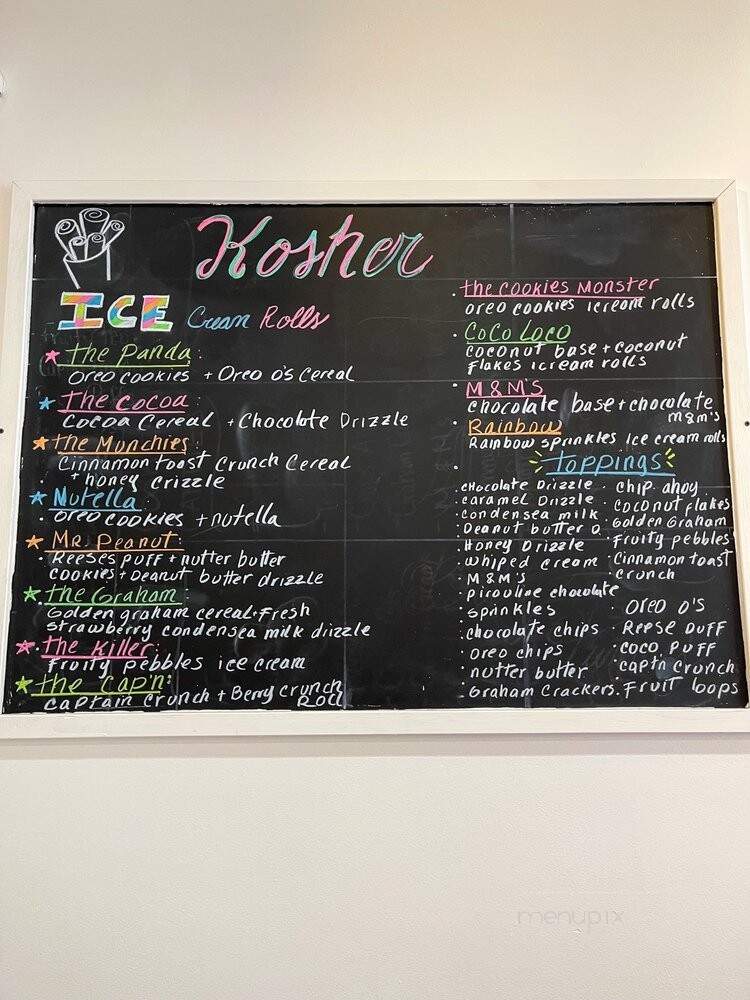 Kosher
ICE Cream Rolls
the Panda:
Oreo cookies + Oreo o's Cereal
The Cocoa:
Cocoa Cereal + Chocolate Drizzle
the Munchies:
Cinnamon toast Crunch Cereal
+ honey Crizzle
Nutella:
Oreo cookies + nutella
Mr. Peanut:
Reeses puff + nutter butter
cookies + peanut butter drizzle
the Graham:
Golden graham cereal + Fresh
Strawberry condensea milk drizzle
The Killer:
Fruity pebbles ice cream
the cap'n:
captain crunch + Berry crunch
Roll
the cookies Monster
oreo cookies icream rolls
CoCo Loco
coconut base + coconut
Flakes icream rolls
M&M's
chocolate base + chocolate
m&m's
Rainbow
Rainbow sprinkles Ice cream rolls
toppings
chocolate Drizzle
caramel Drizzle
condensea milk
Peanut butter D
Honey Drizzle
whiped cream
M&M'S
pirouline chocolate
sprinkles
chocolate chips
oreo chips
nutter butter
Graham Crackers
chip ahoy
coconut flakes
Golden Graham
Fruity pebbles
Cinnamon toast
crunch
Oreo o's
Reese Puff
coco Puff
capt'n crunch
Fruit loops
menupix